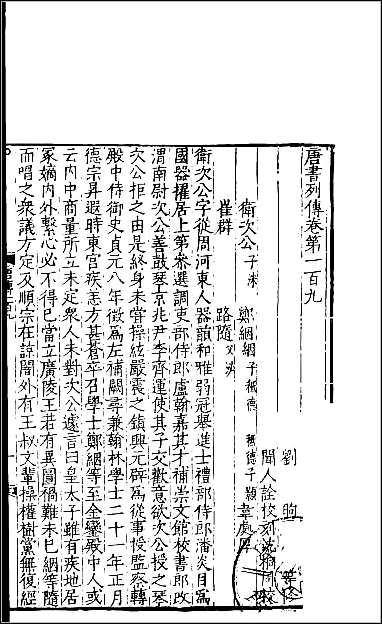 唐書列傳卷第一百九
劉昫
聞人詮校刻沈桐同校
衛次公子洙
鄭絪絪子祗德 祗德子顥
韋處厚
崔群
路隨父泌
衛次公字從周河東人器韻和雅弱冠舉進士禮部侍郎潘炎目為
國器擢居上第參選調吏部侍郎盧翰嘉其才補崇文館校書郎改
渭南尉次公善鼓琴京兆尹李齊運使其子交歡意欲次公授之琴
次公拒之由是終身未嘗操絃嚴震之鎮興元辟為從事授監察轉
殿中侍御史貞元八年徵為左補闕尋兼翰林學士二十一年正月
德宗昇遐時東宮疾恙方甚蒼卒召學士鄭絪等至金鑾殿中人或
云內中商量所立未定衆人未對次公遽言曰皇太子雖有疾地居
冢嫡內外繫心必不得已當立廣陵王若有異圖禍難未已絪等隨
而唱之衆議方定及順宗在諒闇外有王叔文輩操權樹黨無復經